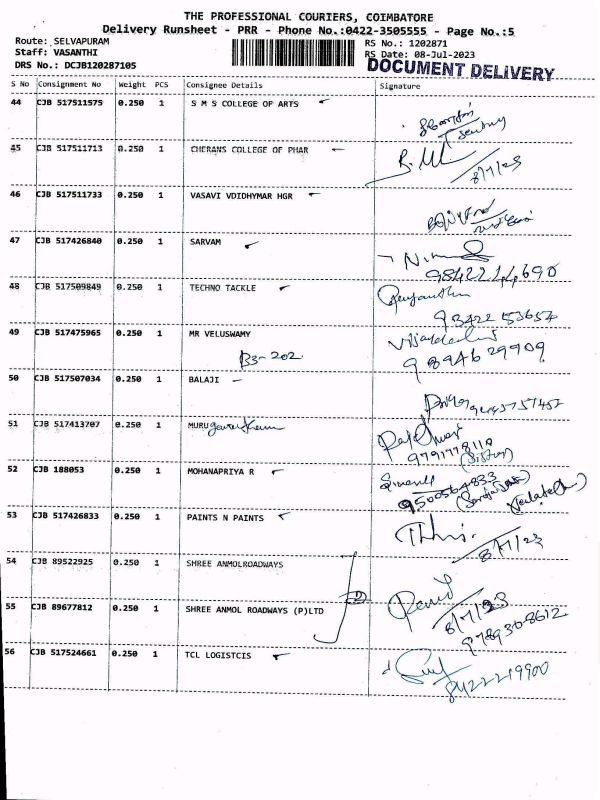 THE PROFESSIONAL COURIERS, COIMBATORE
Delivery Runsheet - PRR - Phone No.:0422-3505555 - Page No.:5
Route: SELVAPURAM RS No.: 1202871
Staff: VASANTHI RS Date: 08-Jul-2023
DRS No.: DCJB120287105 DOCUMENT DELIVERY
S No Consignment No Weight PCS Consignee Details Signature
44 CJB 517511575 0.250 1 S M S COLLEGE OF ARTS
45 CJB 517511713 0.250 1 CHERANS COLLEGE OF PHAR
8/7/23
46 CJB 517511733 0.250 1 VASAVI VDIDHYMAR HGR
47 CJB 517426840 0.250 1 SARVAM
9842214690
48 CJB 517509849 0.250 1 TECHNO TACKLE
93422 53654
49 CJB 517475965 0.250 1 MR VELUSWAMY
B3-202 9894629909
50 CJB 517507034 0.250 1 BALAJI
51 CJB 517413707 0.250 1 MURU
9791778110
52 CJB 188053 0.250 1 MOHANAPRIYA R
9500564833
53 CJB 517426833 0.250 1 PAINTS N PAINTS
8/7/23
54 CJB 89522925 0.250 1 SHREE ANMOLROADWAYS
55 CJB 89677812 0.250 1 SHREE ANMOL ROADWAYS (P)LTD
8/7/23
9789308612
56 CJB 517524661 0.250 1 TCL LOGISTCIS
8422219900